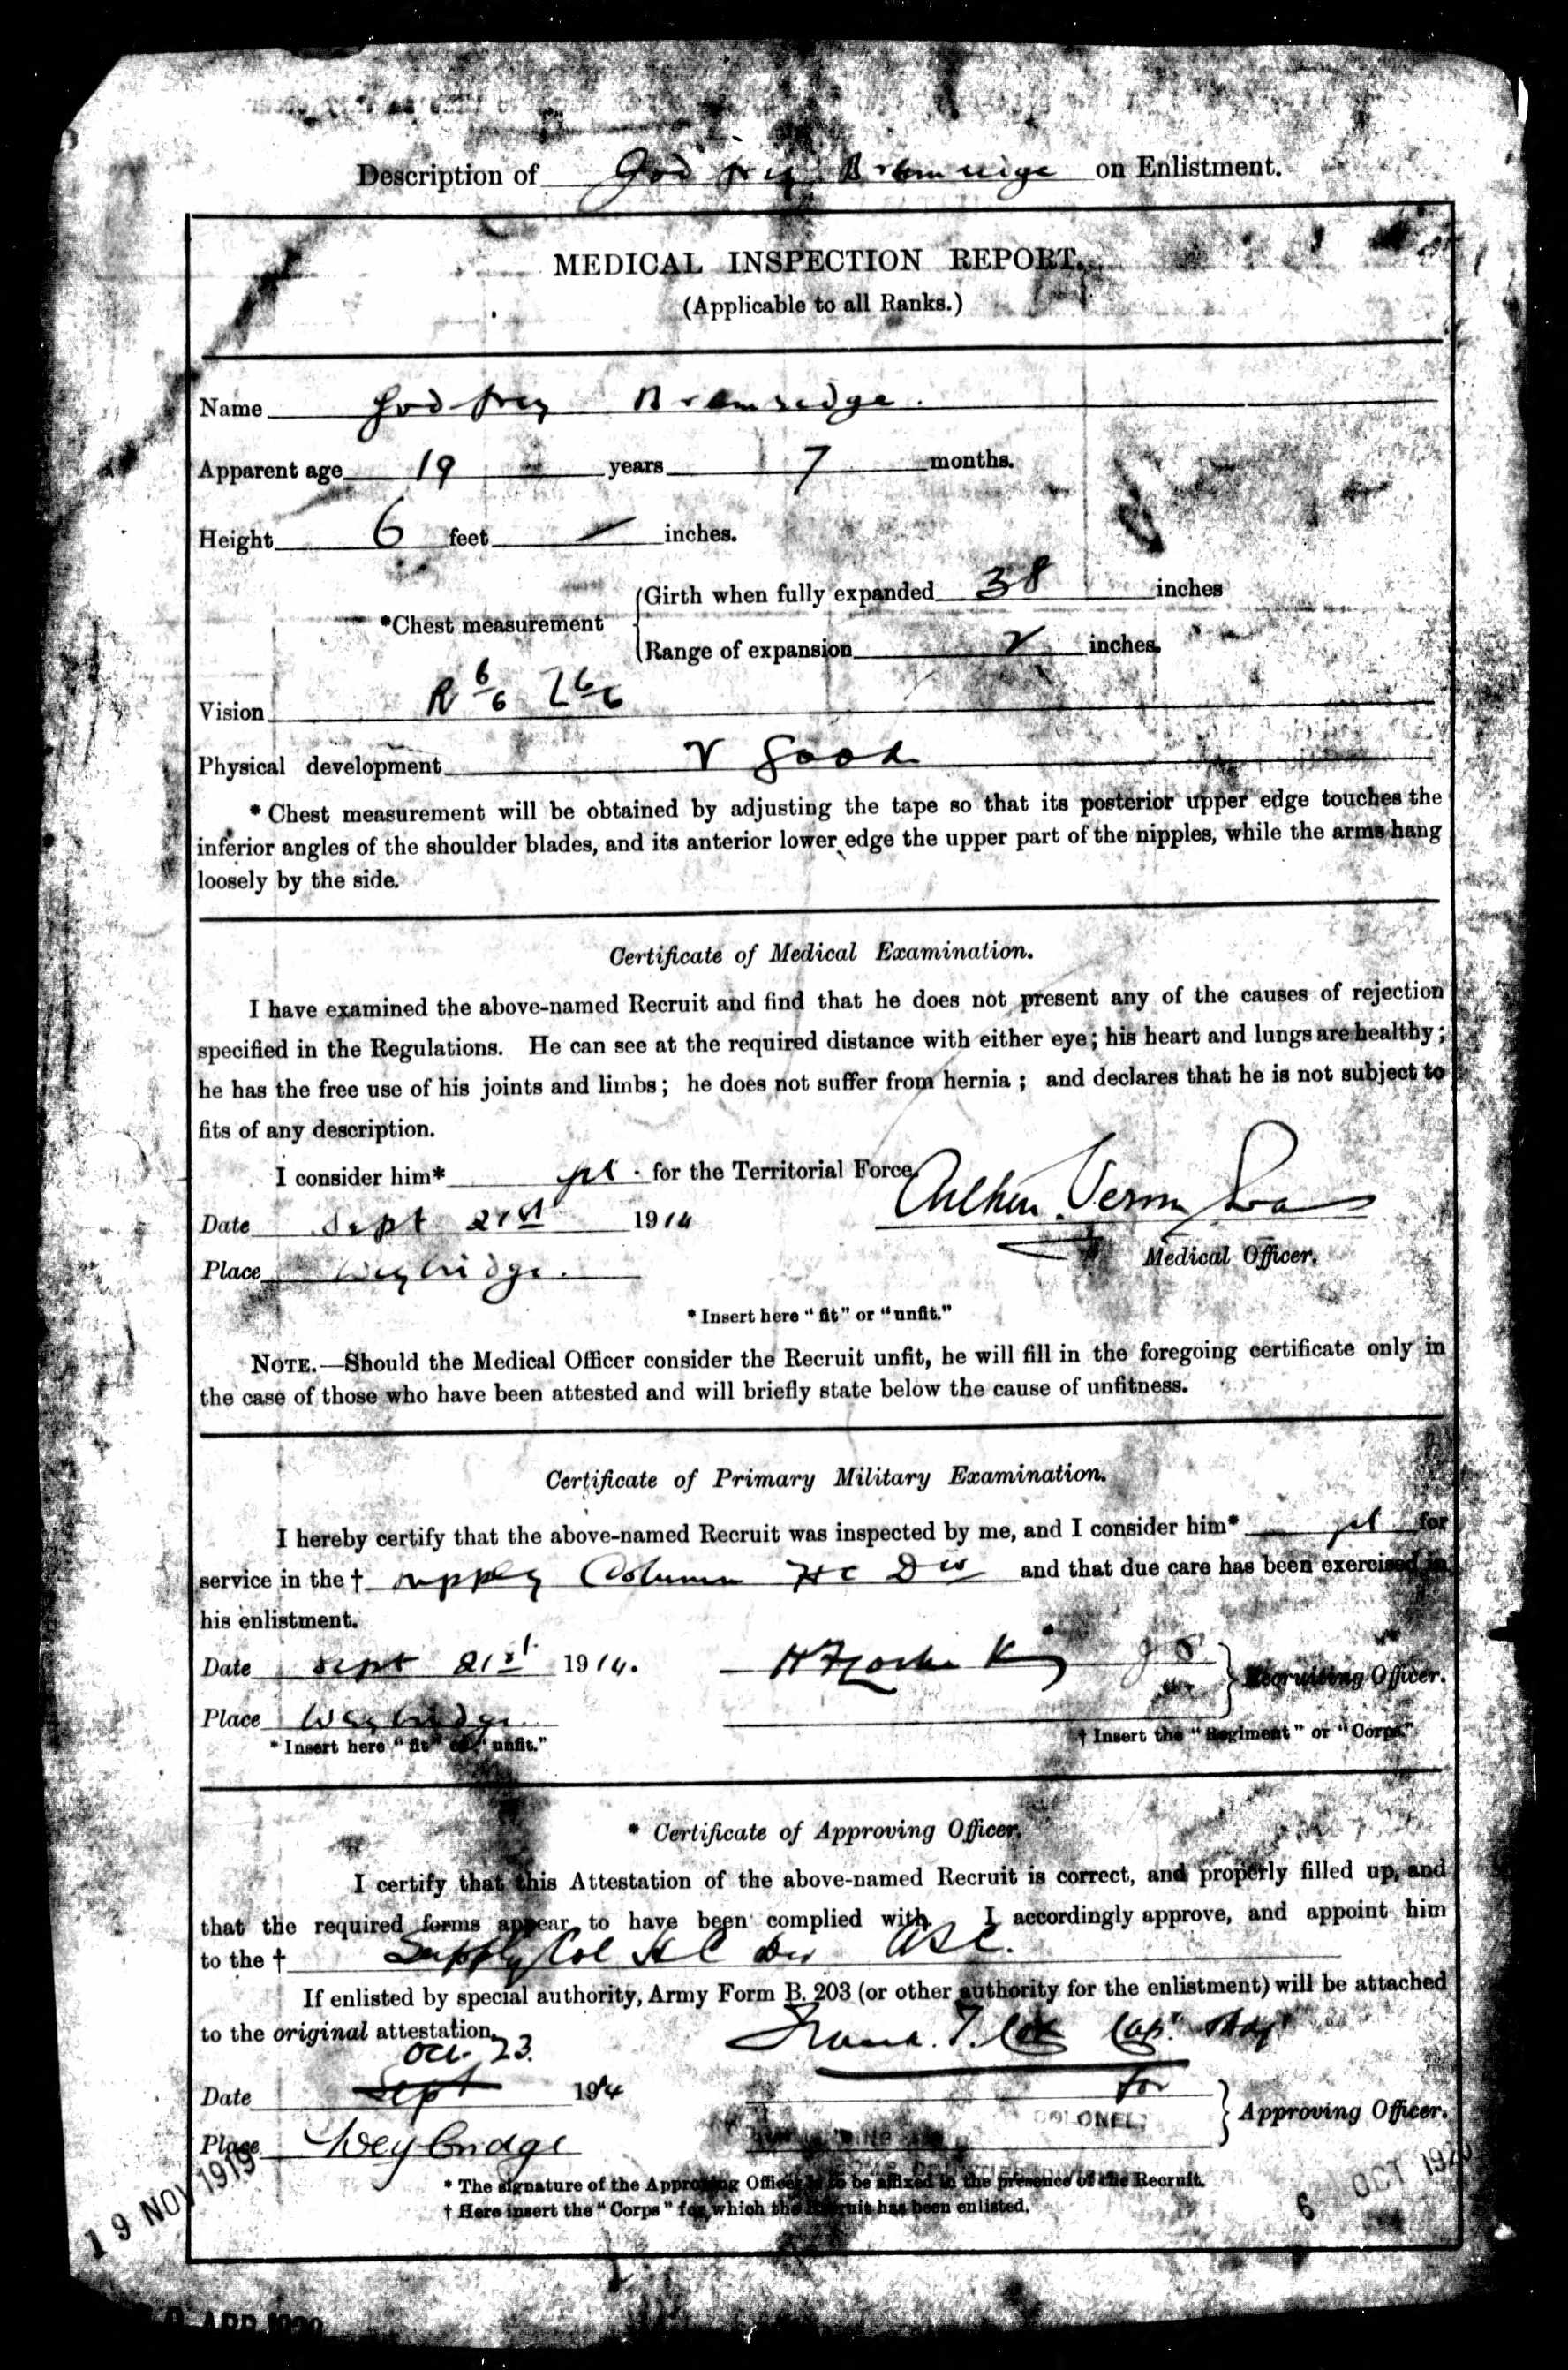 Description of Godfrey Bromridge on Enlistment.
MEDICAL INSPECTION REPORT.
(Applicable to all Ranks.)
Name Godfrey
Apparent age 19 years 7 months.
Height 6 feet — inches.
*Chest measurement
Girth when fully expanded 38 inches
Range of expansion 2 inches.
Vision R 6/6 L 6/6
Physical development V Good
* Chest measurement will be obtained by adjusting the tape so that its posterior upper edge touches the
inferior angles of the shoulder blades, and its anterior lower edge the upper part of the nipples, while the arms hang
loosely by the side.
Certificate of Medical Examination.
I have examined the above-named Recruit and find that he does not present any of the causes of rejection
specified in the Regulations. He can see at the required distance with either eye; his heart and lungs are healthy;
he has the free use of his joints and limbs; he does not suffer from hernia; and declares that he is not subject to
fits of any description.
I consider him* fit for the Territorial Force.
Date Sept 21st 1914
Place Weybridge.
Medical Officer.
* Insert here "fit" or "unfit."
NOTE.—Should the Medical Officer consider the Recruit unfit, he will fill in the foregoing certificate only in
the case of those who have been attested and will briefly state below the cause of unfitness.
Certificate of Primary Military Examination.
I hereby certify that the above-named Recruit was inspected by me, and I consider him* fit for
service in the † Supply Column HC Div and that due care has been exercised in
his enlistment.
Date Sept 21st 1914.
Recruiting Officer.
Place Weybridge
* Insert here "fit" or "unfit."
† Insert the "Regiment" or "Corps"
* Certificate of Approving Officer.
I certify that this Attestation of the above-named Recruit is correct, and properly filled up, and
that the required forms appear to have been complied with. I accordingly approve, and appoint him
to the † Supply Col H C Div ASC.
If enlisted by special authority, Army Form B. 203 (or other authority for the enlistment) will be attached
to the original attestation.
Oct. 23.
Capt. Adjt
Date Sept 1914
for
COLONEL,
Approving Officer.
Place Weybridge
* The signature of the Approving Officer is to be affixed in the presence of the Recruit.
† Here insert the "Corps" for which the Recruit has been enlisted.
19 NOV 1919
6 OCT 1920
APR 1920